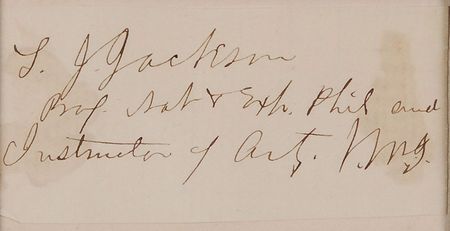 T. J. Jackson
Prof. Nat & Exp. Phil and
Instructor of Art. V.M.I.